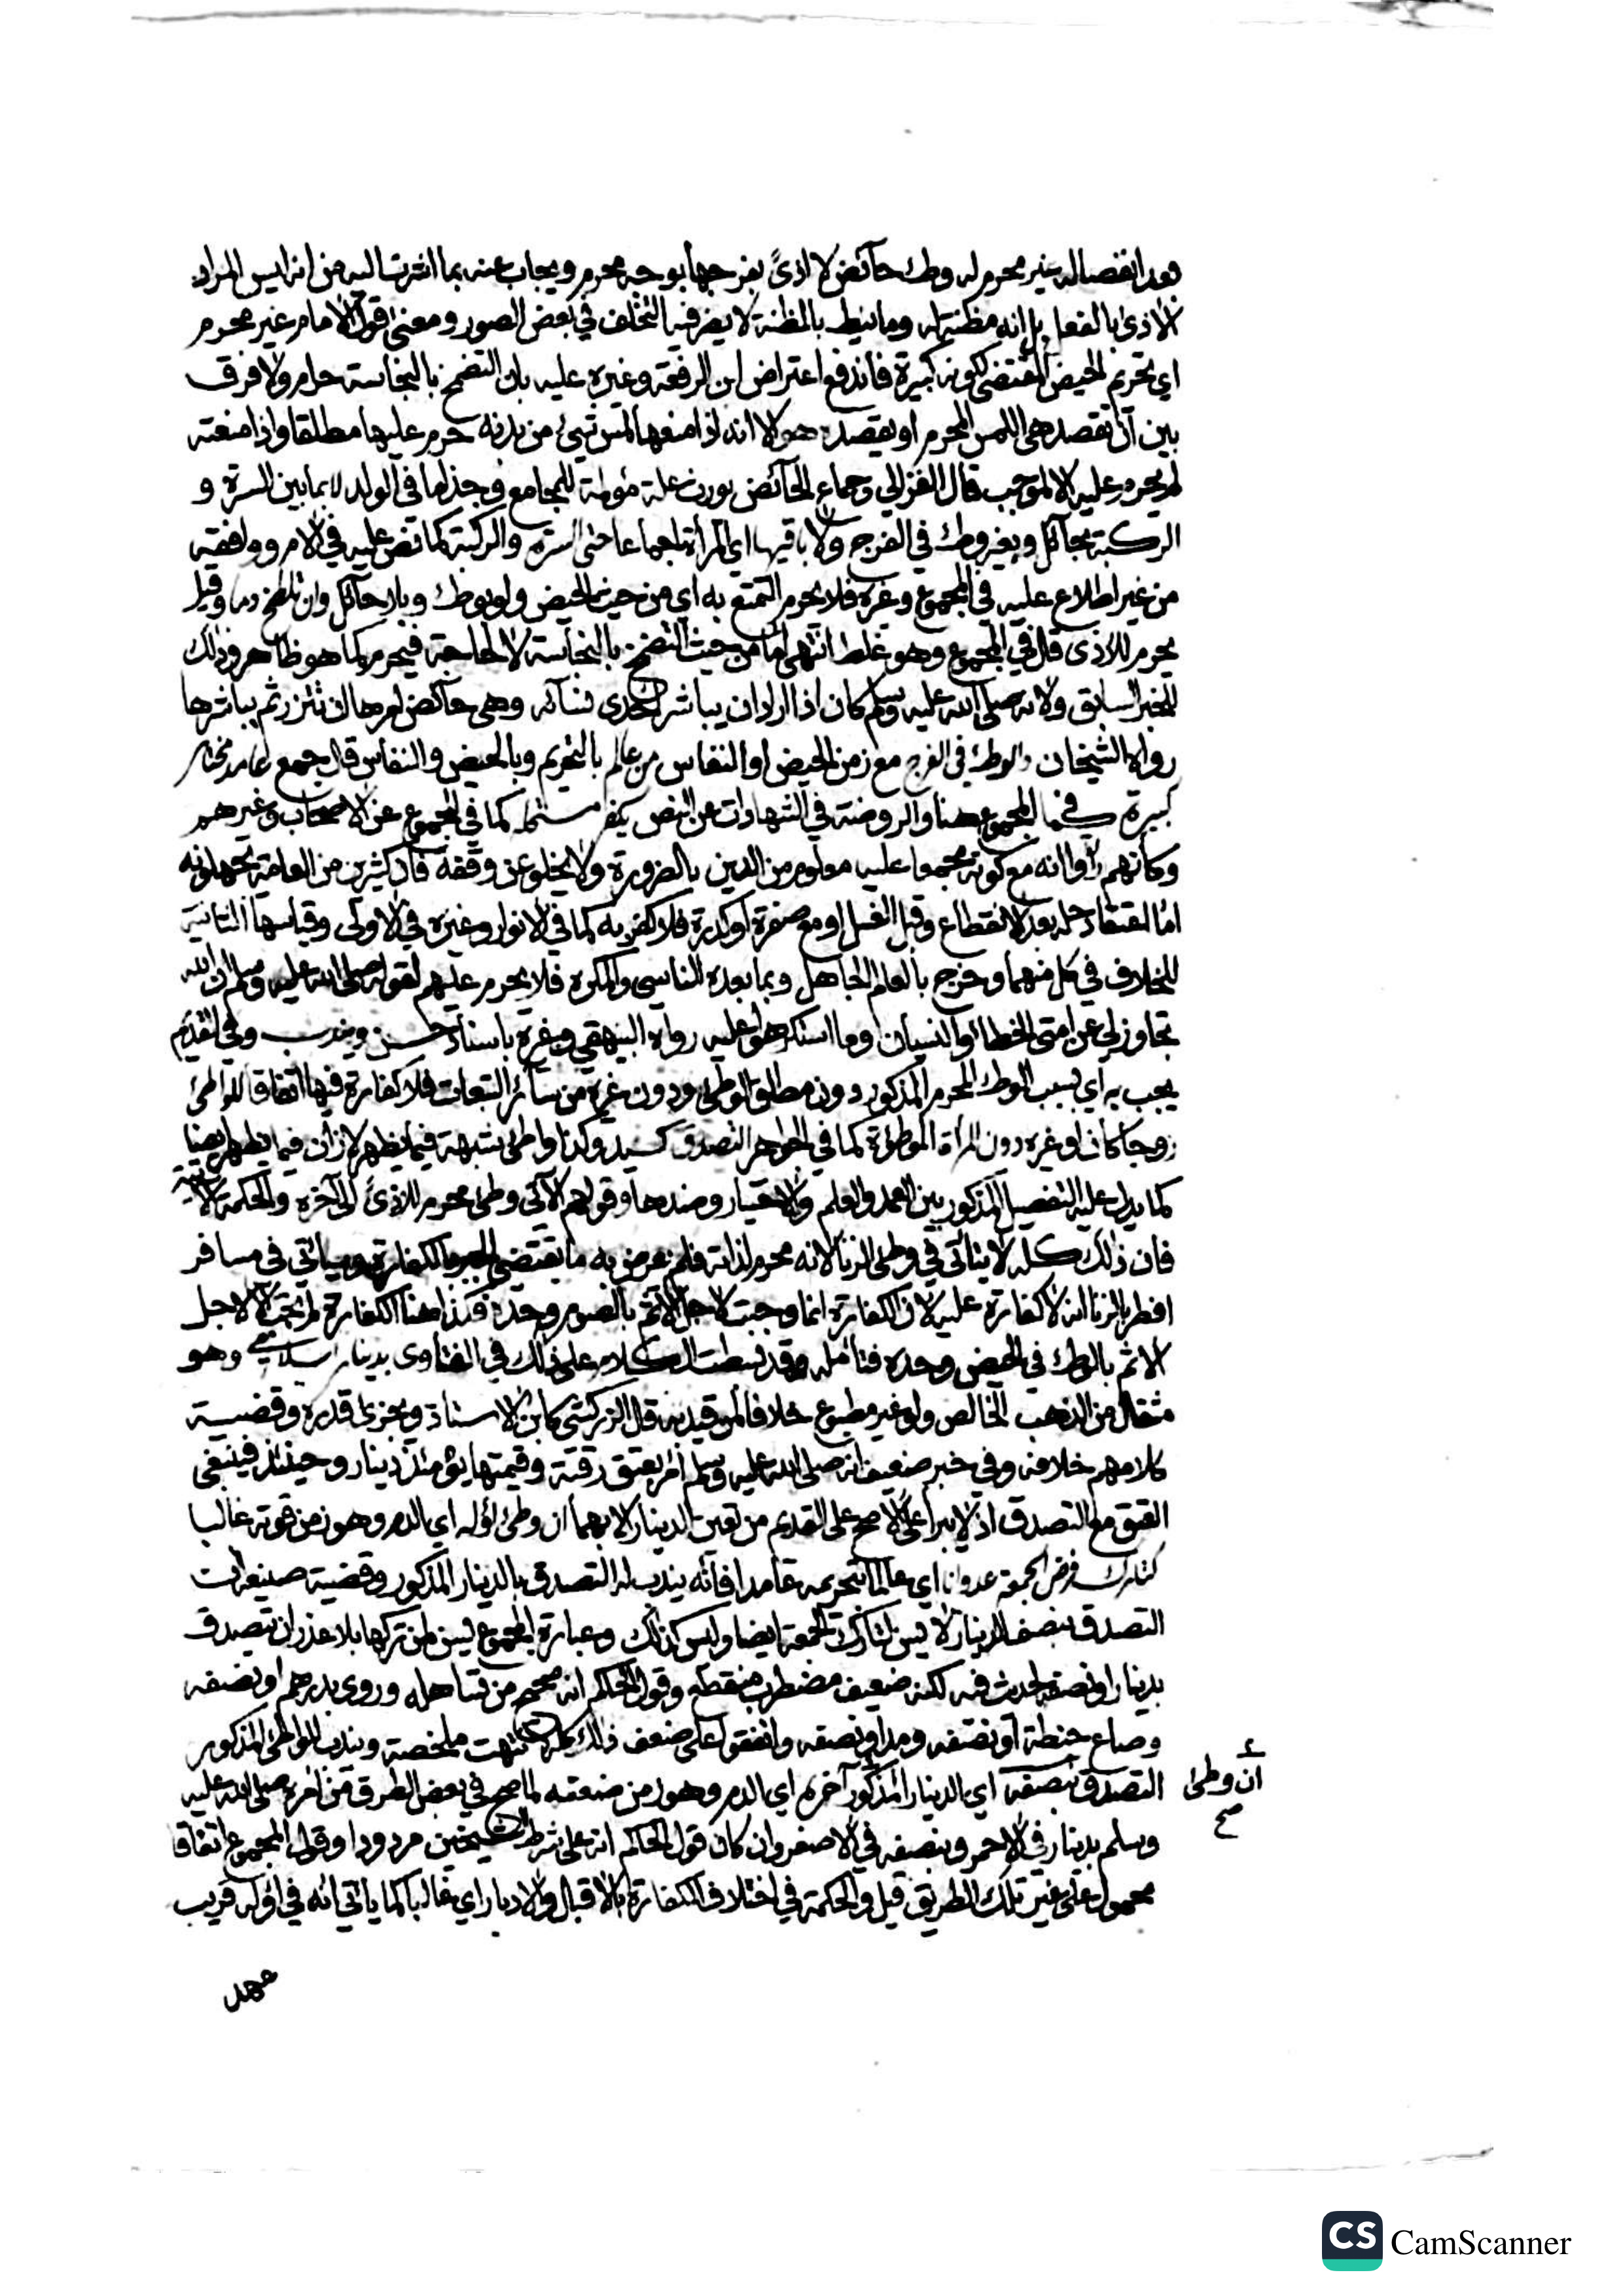 بعد انفصاله غير محرم له وطئ حائض لا اذى بفرجها بوجه محرم ويجاب عنه بما اشرت اليه من انه ليس المراد
الاذى بالفعل بل انه مظنة له وما نيط بالمظنة لا يضر فيه التخلف في بعض الصور ومعنى قول الامام غير محرم
اي تحريم الحيض المقتضي لكونه كبيرة فاندفع اعتراض ابن الرفعة وغيره عليه بان التضمخ بالنجاسة حرام ولا فرق
بين ان تقصد هي اللمس المحرم او يقصده هو الا انه اذا منعها لمس شيء من بدنه حرم عليها مطلقا واذا منعته
لم يحرم عليه الا لموجب قال الغزالي وجماع الحائض يورث علة مؤلمة للمجامع وجذاما في الولد لا بما بين السرة و
الركبة بحائل وبغير وطئ في الفرج ولا باقيها اي المرأة اجماعا حتى السرة والركبة كما نص عليه في الام ووافقته
من غير اطلاع عليه في المجموع وغيره فلا يحرم التمتع به اي من حيث الحيض ولو بوطئ وبلا حائل وان تلطخ دما وقيل
يحرم للاذى قال في المجموع وهو غلط انتهى اما من حيث التضمخ بالنجاسة لا لحاجة فيحرم كما هو ظاهر وذلك
للخبر السابق ولانه صلى الله عليه وسلم كان اذا اراد ان يباشر احدى نسائه وهي حائض امرها ان تتزر ثم يباشرها
رواه الشيخان والوطئ في الفرج مع زمن الحيض او النفاس من عالم بالتحريم وبالحيض والنفاس قال جمع عامد مختار
كبيرة كما في المجموع هنا والروضة في الشهادات عن النص يكفر مستحله كما في المجموع عن الاصحاب وغيرهم
وكانهم رأوا انه مع كونه مجمعا عليه معلوم من الدين بالضرورة ولا يخلو عن وقفة فان كثيرين من العامة يجهلونه
اما اعتقاد حله بعد الانقطاع وقبل الغسل او مع صفرة او كدرة فلا كفر به كما في الانوار وغيره في الاولى وقياسها الثانية
للخلاف في كل منهما وخرج بالعالم الجاهل وبما بعده الناسي والمكره فلا يحرم عليهم لقوله صلى الله عليه وسلم ان الله
تجاوز لي عن امتي الخطا والنسيان وما استكرهوا عليه رواه البيهقي وغيره باسناد حسن ويندب وفي القديم
يجب به اي بسبب الوطئ المحرم المذكور دون مطلق الوطئ ودون غيره من سائر التبعات فلا كفارة فيها اتفاقا للواطئ
زوجا كان او غيره دون المرأة الموطوءة كما في الجواهر التصدق كسيد وكذا واطئ بشبهة فيما يظهر لا زان فيما يظهر ايضا
كما يدل عليه التفصيل المذكور بين العمد والعلم والاختيار وضدها وقولهم الآتي وطئ محرم للاذى الى آخره والحكمة الآتية
فان ذلك كله لا يتأتى في وطئ الزنا لانه محرم لذاته فلم يعرض به ما يقتضي الكفارة وسيأتي في مسافر
افطر بالزنا انه لا كفارة عليه لان الكفارة انما وجبت لاجل الاثم بالصوم وحده فكذا هنا الكفارة لم تجب الا لاجل
الاثم بالوطئ في الحيض وحده فتأمله وقد بسطت الكلام على ذلك في الفتاوى بدينار اسلامي وهو
مثقال من الذهب الخالص ولو غير مطبوع خلافا لمن قيد به قال الزركشي كابن الاستاذ ويجزئ قدره وقضية
كلامهم خلافه وفي خبر ضعيف انه صلى الله عليه وسلم امر بعتق رقبة وقيمتها يومئذ دينار وحينئذ فينبغي
العتق مع التصدق اذ لا يبرأ على الاصح على القديم من تعين الدينار الا بهما ان وطئ اوله اي الدم وهو زمن قوته غالبا
كتارك فرض الجمعة عدوانا اي عالما تحريمه عامدا فانه يندب له التصدق بالدينار المذكور وقضية صنيعه ان
التصدق بنصف الدينار لا يسن لتارك الجمعة ايضا وليس كذلك وعبارة المجموع يسن لمن تركها بلا عذر ان يتصدق
بدينار او نصفه لحديث فيه لكنه ضعيف مضطرب منقطع وقول الحاكم انه صحيح من تساهله وروي بدرهم او نصفه
وصاع حنطة او نصفه ومد او نصفه واتفقوا على ضعف ذلك كله انتهت ملخصة ويندب للواطئ المذكور
التصدق بنصفه اي الدينار المذكور آخره اي الدم وهو زمن ضعفه لما صح في بعض الطرق من امره صلى الله عليه
ان وطئ
صح
وسلم بدينار في الاحمر وبنصفه في الاصفر وان كان قول الحاكم انه على شرط الشيخين مردودا وقول المجموع اتفاقا
محمول على غير تلك الطريق قيل والحكمة في اختلاف الكفارة بالاقبال والادبار اي غالبا كما يأتي انه في اوله قريب
عهد
CS CamScanner